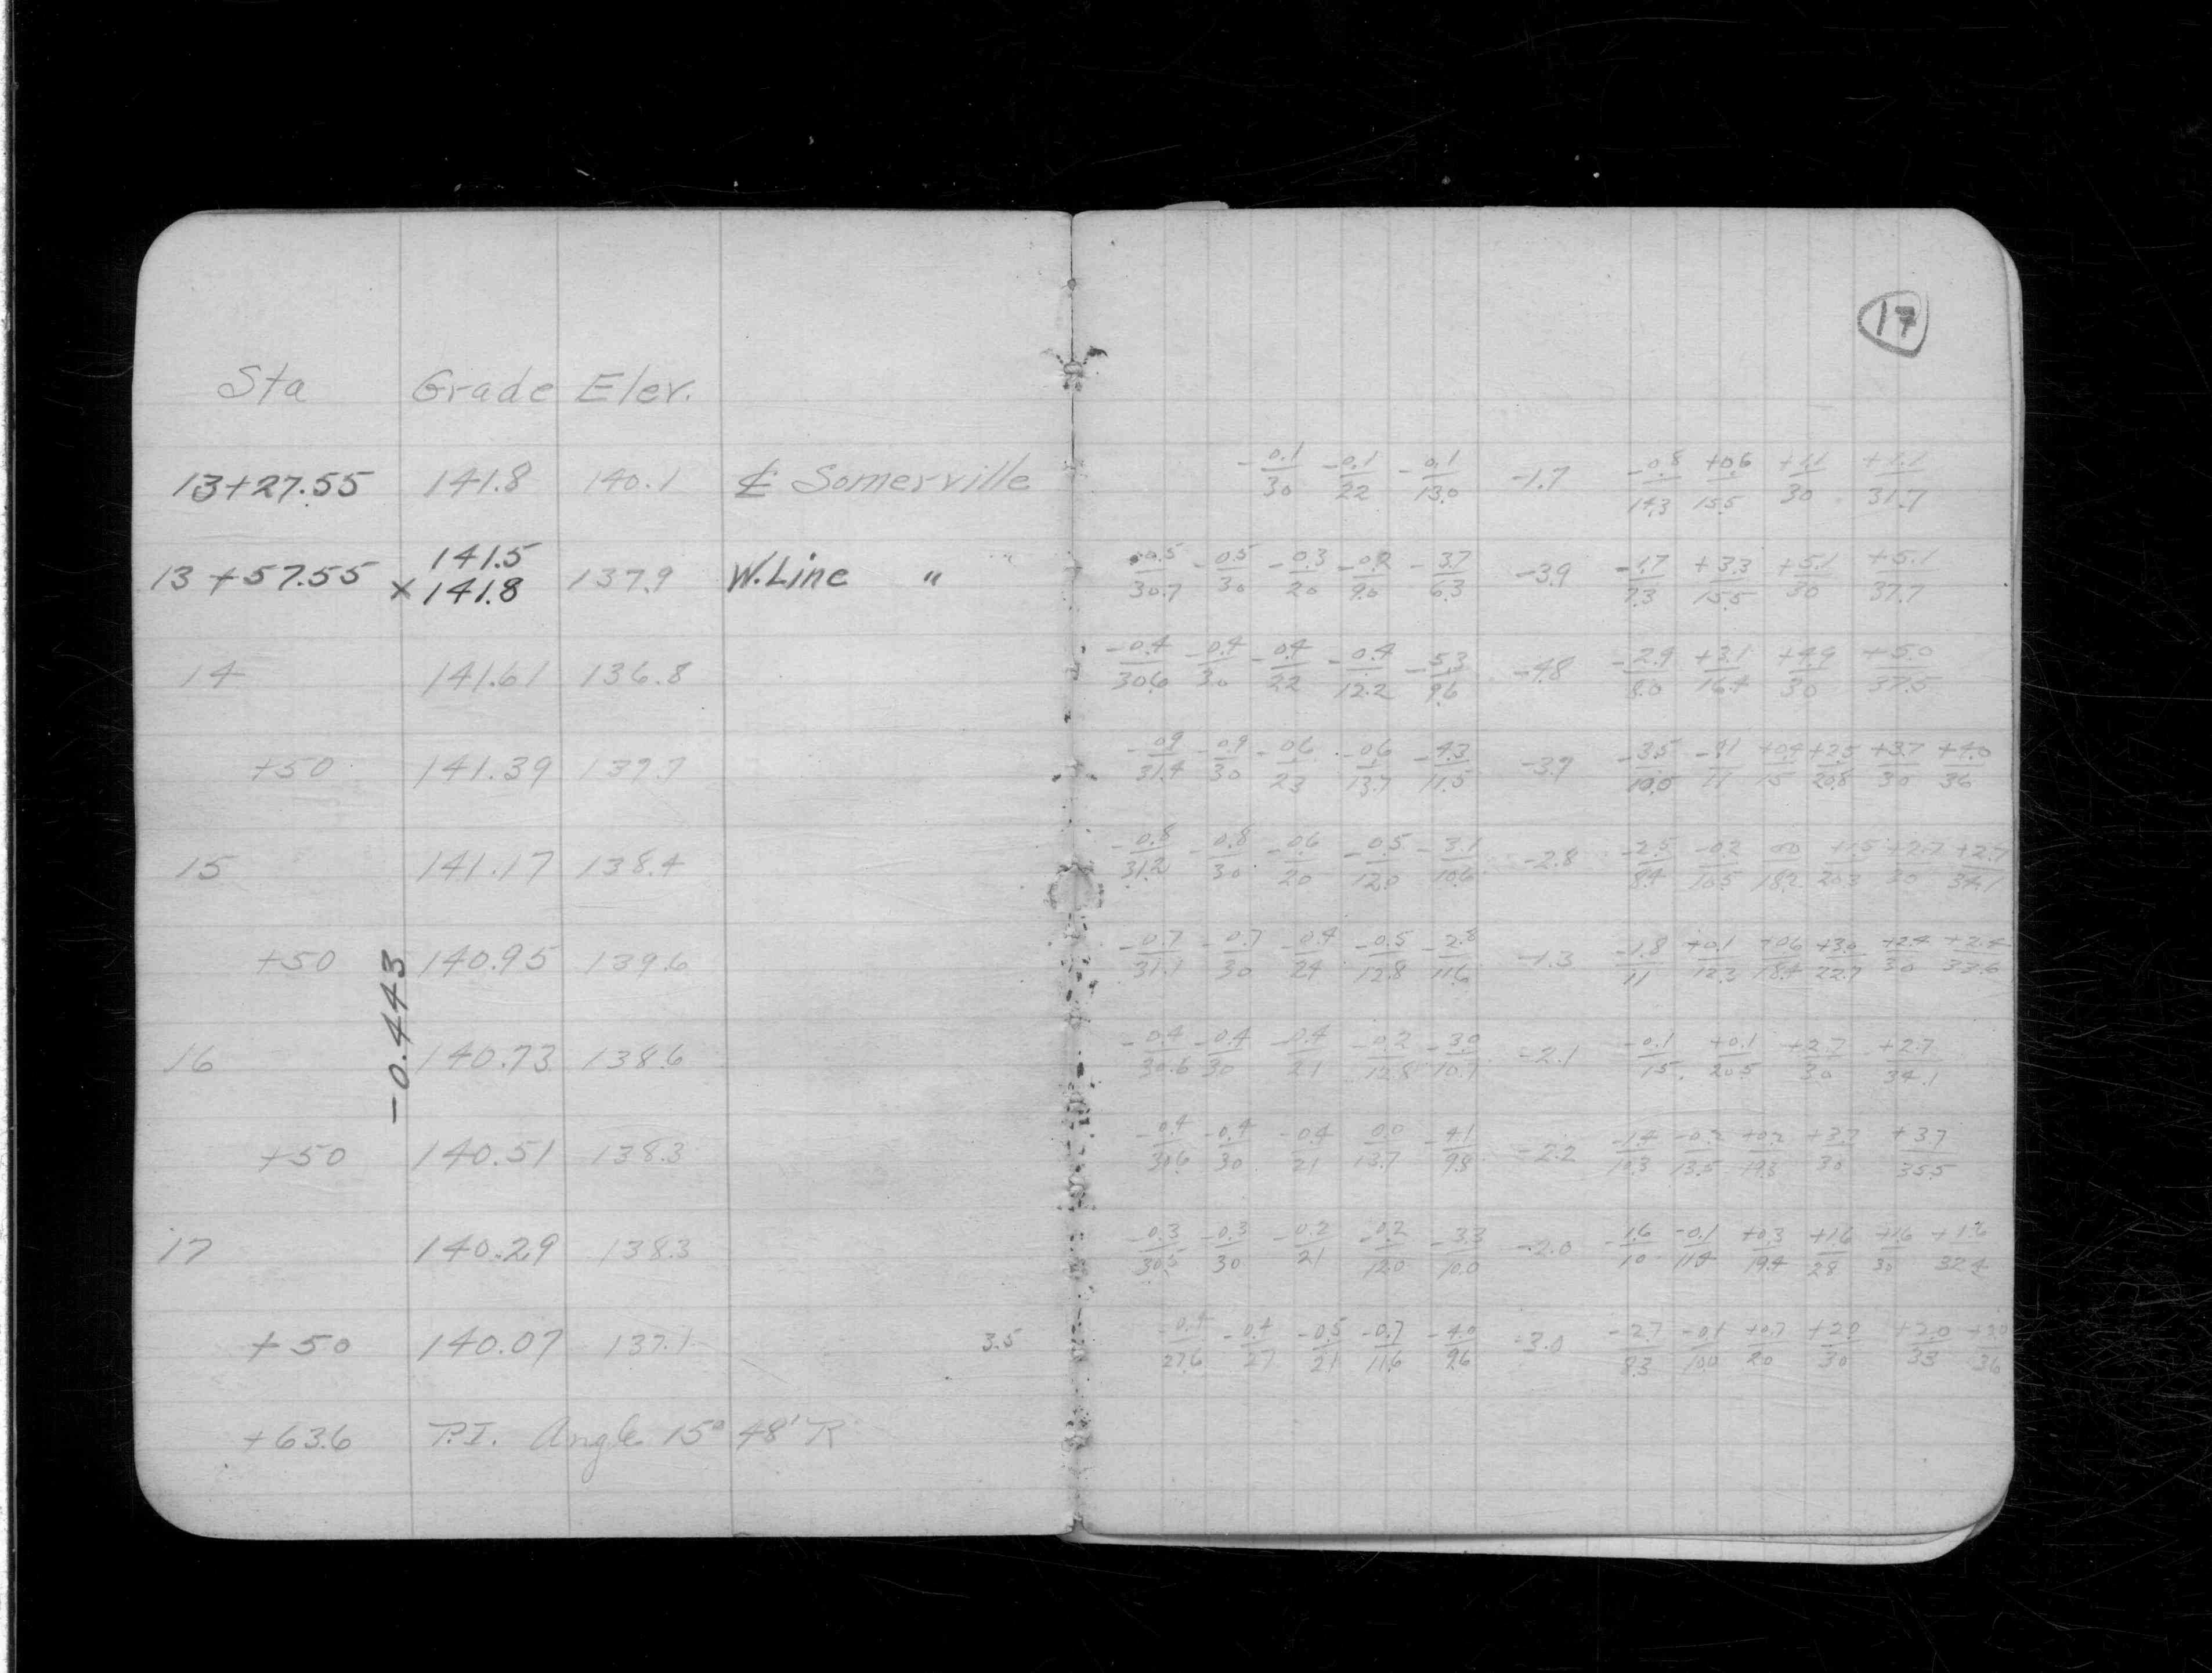 17
Sta Grade Elev.
13+27.55 141.8 140.1 ℄ Somerville -0.1/30 -0.1/22 -0.1/13.0 -1.7 -0.8/14.3 +0.6/15.5 +1.1/30 +1.1/31.7
141.5
13+57.55 x 141.8 137.9 W.Line " -0.5/30.7 -0.5/30 -0.3/20 -0.2/9.0 -3.7/6.3 -3.9 -1.7/7.3 +3.3/15.5 +5.1/30 +5.1/37.7
14 141.61 136.8 -0.4/30.6 -0.4/30 -0.4/22 -0.4/12.2 -5.3/9.6 -4.8 -2.9/8.0 +3.1/16.4 +4.9/30 +5.0/37.5
+50 141.39 -0.9/31.4 -0.9/30 -0.6/23 -0.6/13.7 -4.3/11.5 -3.9 -3.5/10.0 /11 +0.4/15 +2.5/20.8 +3.7/30 +4.0/36
15 141.17 138.4 -0.8/31.2 -0.8/30 -0.6/20 -0.5/12.0 -3.1/10.6 -2.8 -2.5/8.4 -0.2/10.5 0.0/18.2 +1.5/20.3 +2.7/30 +2.7/34.1
+50 140.95 139.6 -0.7/31.1 -0.7/30 -0.4/24 -0.5/12.8 -2.8/11.6 -1.3 -1.8/11 +0.1/12.3 +0.6/18.4 +3.0/22.7 +2.4/30 +2.4/33.6
-0.443
16 140.73 138.6 -0.4/30.6 -0.4/30 -0.4/21 -0.2/12.8 -3.0/10.1 -2.1 -0.1/15 +0.1/20.5 +2.7/30 +2.7/34.1
+50 140.51 138.3 -0.4/30.6 -0.4/30 -0.4/21 0.0/13.7 -4.1/9.8 -2.2 -1.4/10.3 -0.2/13.5 +0.2/19.3 +3.7/30 +3.7/35.5
17 140.29 138.3 -0.3/30.5 -0.3/30 -0.2/21 -0.2/12.0 -3.3/10.0 -2.0 -1.6/10 -0.1/11.4 +0.3/19.4 +1.6/28 +1.6/30 +1.6/32.4
+50 140.07 137.1 3.5 -0.4/27.6 -0.4/27 -0.5/21 -0.7/11.6 -4.0/9.6 -3.0 -2.7/8.3 -0.1/10.0 +0.7/20 +2.0/30 +2.0/33 /36
+63.6 P.I. Angle 15° 48' R